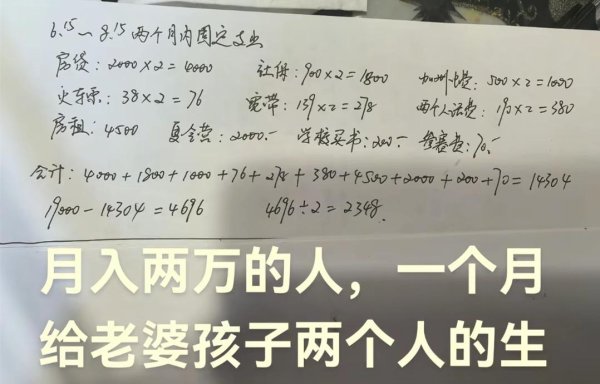 6.15~8.15两个月内固定支出
房贷：2000×2=4000 社保：900×2=1800 加油费：500×2=1000
火车票：38×2=76 宽带：139×2=278 两个人话费：190×2=380
房租：4500 夏令营：2000.- 学校买书：200.- 参赛费：70.-
合计：4000+1800+1000+76+278+380+4500+2000+200+70=14304
19000-14304=4696 4696÷2=2348.
月入两万的人，一个月
给老婆孩子两个人的生